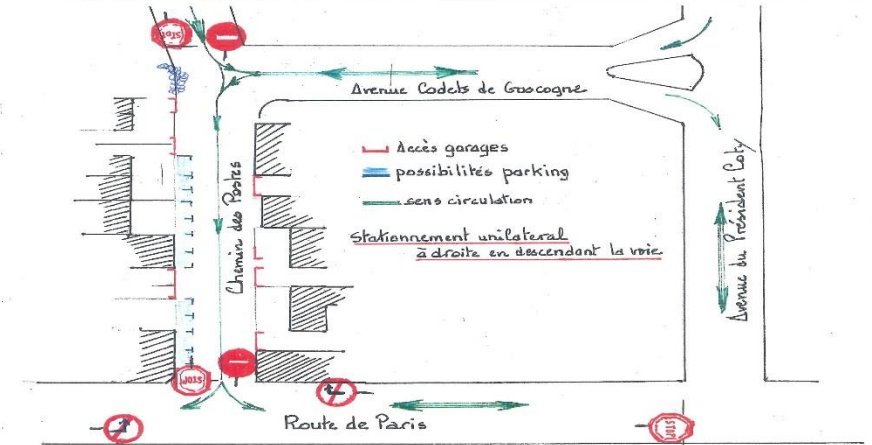 STOP
Avenue Cadets de Gascogne
Accès garages
possibilités parking
sens circulation
Stationnement unilateral
à droite en descendant la voie
Chemin des Postes
Avenue du Président Coty
STOP
Route de Paris
STOP